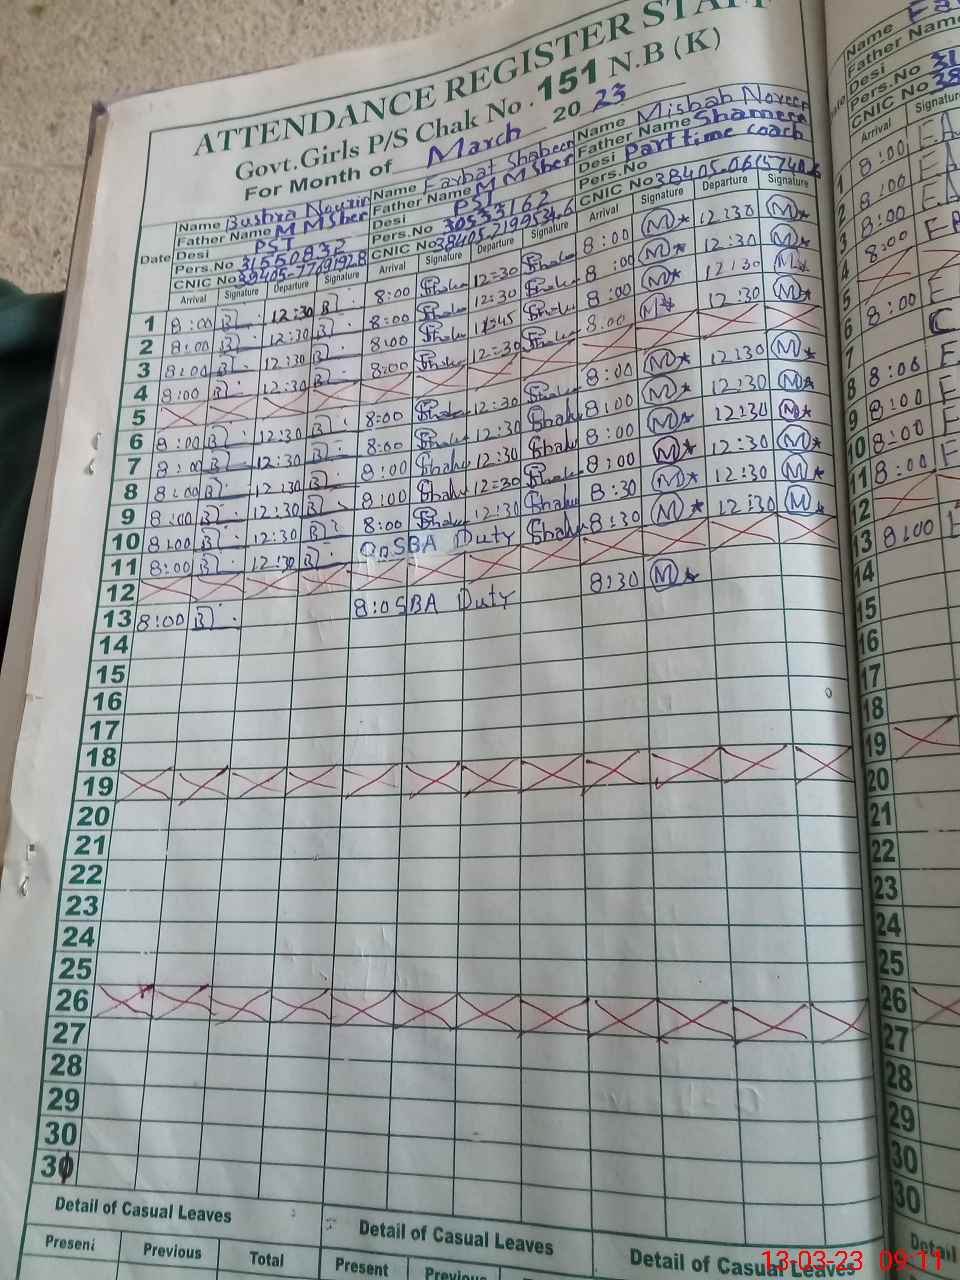 ATTENDANCE REGISTER STAFF
Govt.Girls P/S Chak No.151 N.B (K)
For Month of March 2023
Name Bushra Nourin
Father Name M M Sher
Desi PST
Pers.No 31550832
CNIC No
Name Farhat Shaheen
Father Name M M Sher
Desi PST
Pers.No 30533162
CNIC No
Name Misbah Noreen
Father Name Shameer
Desi Part time coach
Pers.No
CNIC No
Date Arrival Signature Departure Signature Arrival Signature Departure Signature Arrival Signature Departure Signature
1 8:00 B 12:30 B 8:00 Shahe 12:30 Shahe 8:00 M 12:30 M
2 8:00 B 12:30 B 8:00 Shahe 12:30 Shahe 8:00 M 12:30 M
3 8:00 B 12:30 B 8:00 Shahe 11:45 Shahe 8:00 M 12:30 M
4 8:00 B 12:30 B 8:00 Shahe 12:30 Shahe 8:00 M 12:30 M
5
6 8:00 B 12:30 B 8:00 Shahe 12:30 Shahe 8:00 M 12:30 M
7 8:00 B 12:30 B 8:00 Shahe 12:30 Shahe 8:00 M 12:30 M
8 8:00 B 12:30 B 8:00 Shahe 12:30 Shahe 8:00 M 12:30 M
9 8:00 B 12:30 B 8:00 Shahe 12:30 Shahe 8:00 M 12:30 M
10 8:00 B 12:30 B 8:00 Shahe 12:30 Shahe 8:30 M 12:30 M
11 8:00 B 12:30 B On SBA Duty Shahe 8:30 M 12:30 M
12
13 8:00 B 8:0 SBA Duty 8:30 M
14
15
16
17
18
19
20
21
22
23
24
25
26
27
28
29
30
31
Detail of Casual Leaves Detail of Casual Leaves Detail of Casual Leaves
Present Previous Total Present Previous
Name
Father Name
Desi
Pers.No
CNIC No
Arrival Signature
1 8:00
2 8:00
3 8:00
4 8:00
5
6 8:00
7
8 8:00
9 8:00
10 8:00
11 8:00
12
13 8:00
14
15
16
17
18
19
20
21
22
23
24
25
26
27
28
29
30
30
Detail
13-03-23 09:11